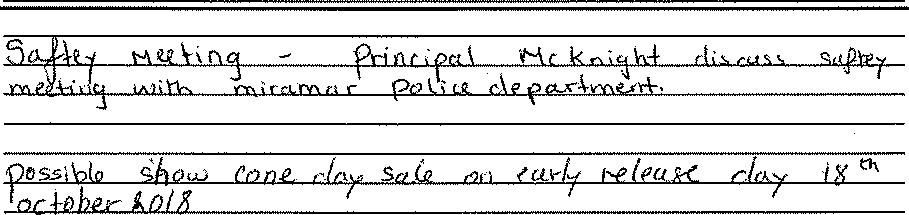 Saftey Meeting - Principal McKnight discuss saftey
meeting with miramar police department.
possible show cone day sale on early release day 18th
october 2018